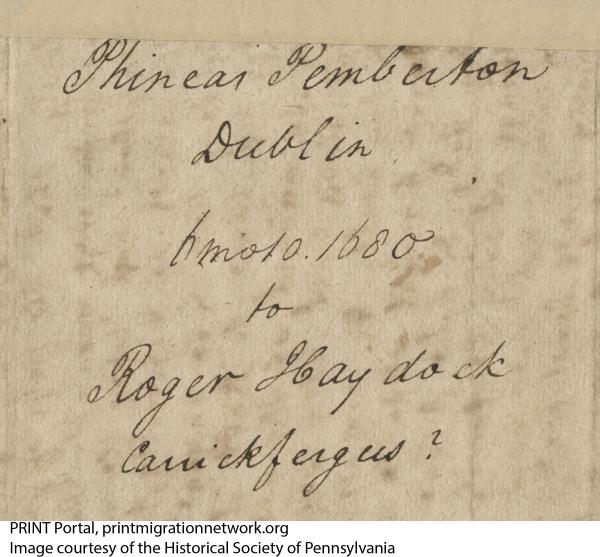 Phineas Pemberton
Dublin
6 mo 10. 1680
to
Roger Haydock
Carrickfergus?
PRINT Portal, printmigrationnetwork.org
Image courtesy of the Historical Society of Pennsylvania